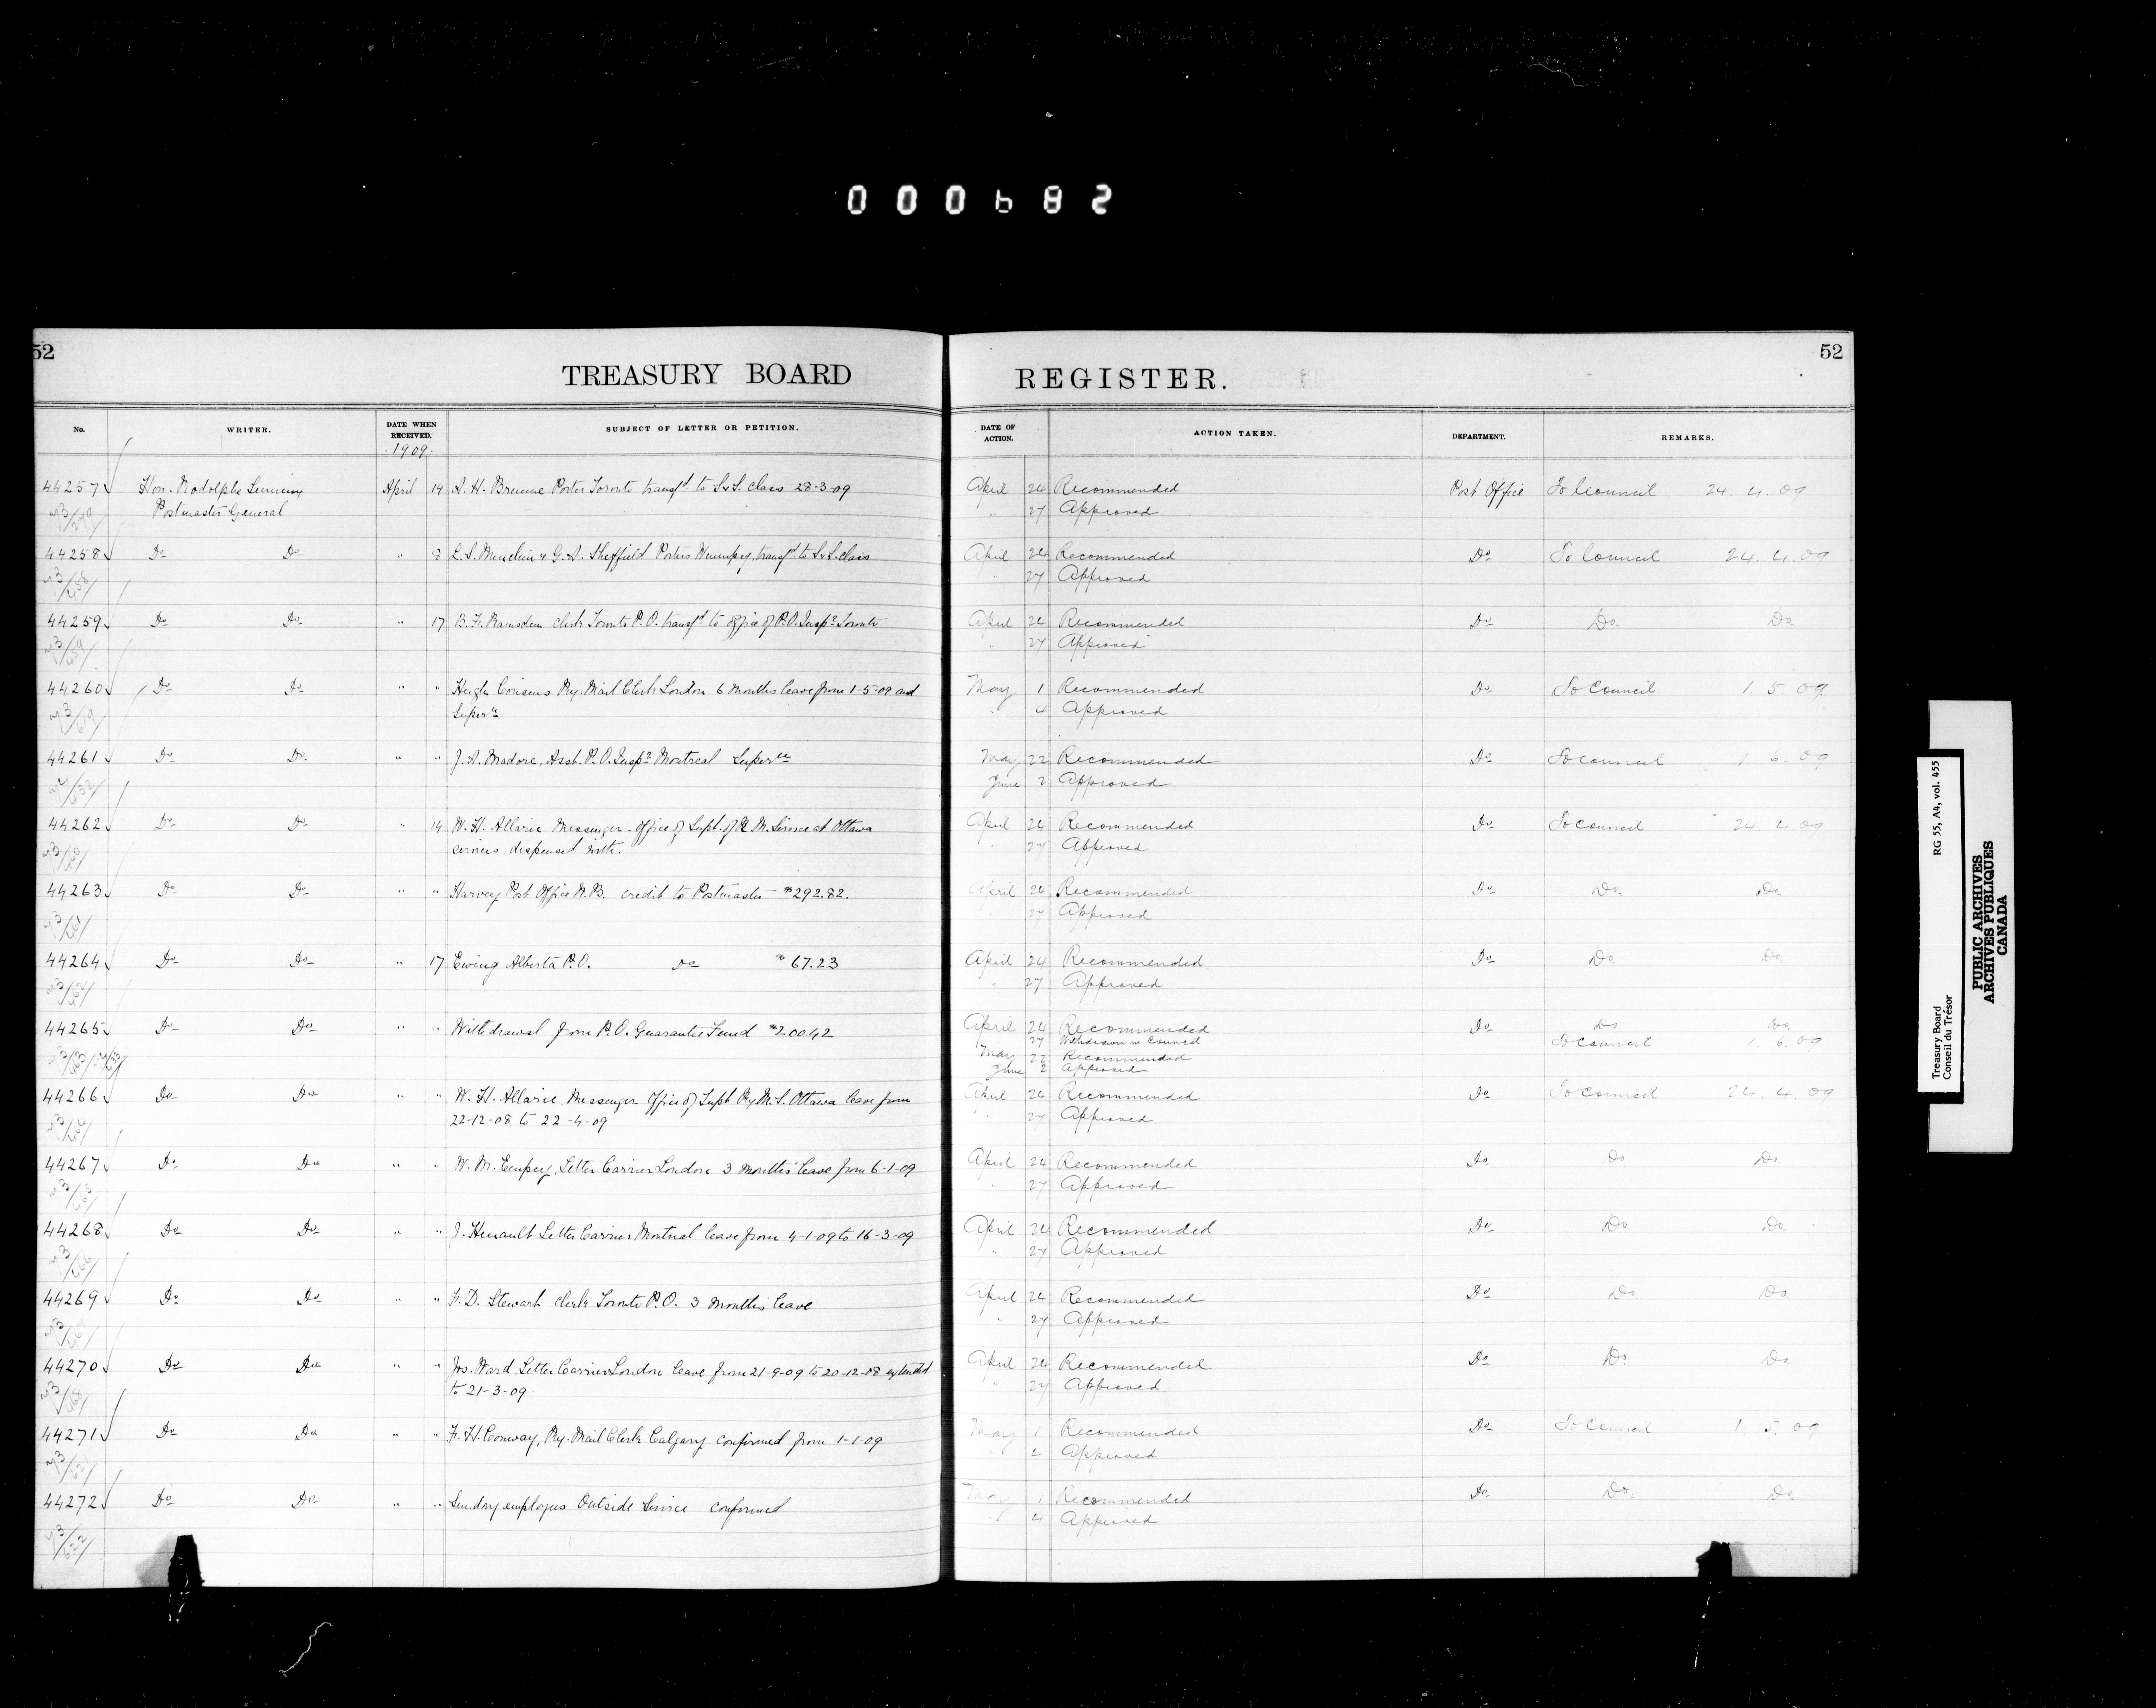 000682
52
52
TREASURY BOARD
REGISTER.
No.
WRITER.
DATE WHEN RECEIVED.
SUBJECT OF LETTER OR PETITION.
DATE OF ACTION.
ACTION TAKEN.
DEPARTMENT.
REMARKS.
1909
44257 Hon. Rodolphe Lemieux April 14 A. H. Porter Toronto transfd to S. & S. class 28-3-09 April 24 Recommended Post Office To Council 24.4.09
Postmaster General " 27 Approved
44258 Do Do " 8 & G. A. Sheffield Porters Winnipeg, transfd to S. & S. class April 24 Recommended Do To Council 24.4.09
" 27 Approved
44259 Do Do " 17 B. F. Ramsden Clerk Toronto P.O. transfd to office of P.O. Inspr Toronto April 24 Recommended Do Do Do
" 27 Approved
44260 Do Do " " Hugh Cousens Ry. Mail Clerk London 6 months leave from 1-5-09 and May 1 Recommended Do To Council 1.5.09
Superan " 4 Approved
44261 Do Do " " J. A. Madore, Asst. P.O. Inspr Montreal Superan May 22 Recommended Do To Council 1.6.09
June 2 Approved
44262 Do Do " 14 W. H. Allarie Messenger Office of Supt. of R. M. Service at Ottawa April 24 Recommended Do To Council 24.4.09
services dispensed with. " 27 Approved
44263 Do Do " " Harvey Post Office N.B. credit to Postmaster $292.82. April 24 Recommended Do Do Do
" 27 Approved
44264 Do Do " 17 Ewing Alberta P.O. Do $67.23 April 24 Recommended Do Do Do
" 27 Approved
44265 Do Do " " Withdrawal from P.O. Guarantee Fund $200.42 April 24 Recommended Do Do Do
27 Withdrawn in Council To Council 1.6.09
May 22 Recommended
June 2 Approved
44266 Do Do " " W. H. Allarie, Messenger Office of Supt Ry M. S. Ottawa leave from April 24 Recommended Do To Council 24.4.09
22-12-08 to 22-4-09 " 27 Approved
44267 Do Do " " W. M. Empey, Letter Carrier, London 3 months leave from 6-1-09 April 24 Recommended Do Do Do
" 27 Approved
44268 Do Do " " J. Henault Letter Carrier Montreal leave from 4-1-09 to 16-3-09 April 24 Recommended Do Do Do
" 27 Approved
44269 Do Do " " F. D. Stewart Clerk Toronto P.O. 3 months leave April 24 Recommended Do Do Do
" 27 Approved
44270 Do Do " " Jos. Ward Letter Carrier London leave from 21-9-09 to 20-12-08 extended April 24 Recommended Do Do Do
to 21-3-09 " 27 Approved
44271 Do Do " " F. H. Conway, Ry. Mail Clerk Calgary confirmed from 1-1-09 May 1 Recommended Do To Council 1.5.09
4 Approved
44272 Do Do " " Sundry employees Outside Service confirmed May 1 Recommended Do Do Do
" 4 Approved
Treasury Board RG 55, A4, vol. 455
Conseil du Trésor
PUBLIC ARCHIVES
ARCHIVES PUBLIQUES
CANADA